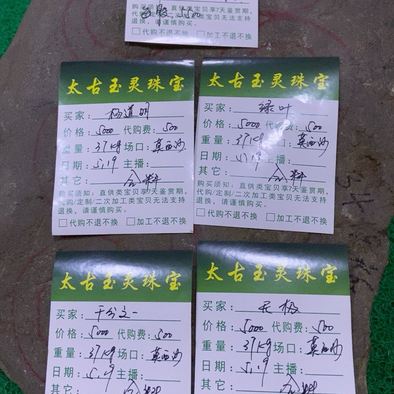 买宝须知：直供类宝贝享7天鉴赏期，
代购/定制/二次加工类宝贝无法支持
退换，请谨慎购买。
□代购不退不换 □加工不退不换
太古玉灵珠宝
买家：杨道明
价格：5000 代购费：500
重量：37kg 场口：莫西沙
日期：5.19 主播：
其它：合料
购买须知：直供类宝贝享7天鉴赏期，
代购/定制/二次加工类宝贝无法支持
退换，请谨慎购买。
□代购不退不换 □加工不退不换
太古玉灵珠宝
买家：绿叶
价格：5000 代购费：500
重量：37kg 场口：莫西沙
日期：5.19 主播：
其它：合料
购买须知：直供类宝贝享7天鉴赏期，
代购/定制/二次加工类宝贝无法支持
退换，请谨慎购买。
□代购不退不换 □加工不退不换
太古玉灵珠宝
买家：千分之一
价格：5000 代购费：500
重量：37kg 场口：莫西沙
日期：5.19 主播：
其它：合料
太古玉灵珠宝
买家：无极
价格：5000 代购费：500
重量：37kg 场口：莫西沙
日期：5.19 主播：
其它：合料